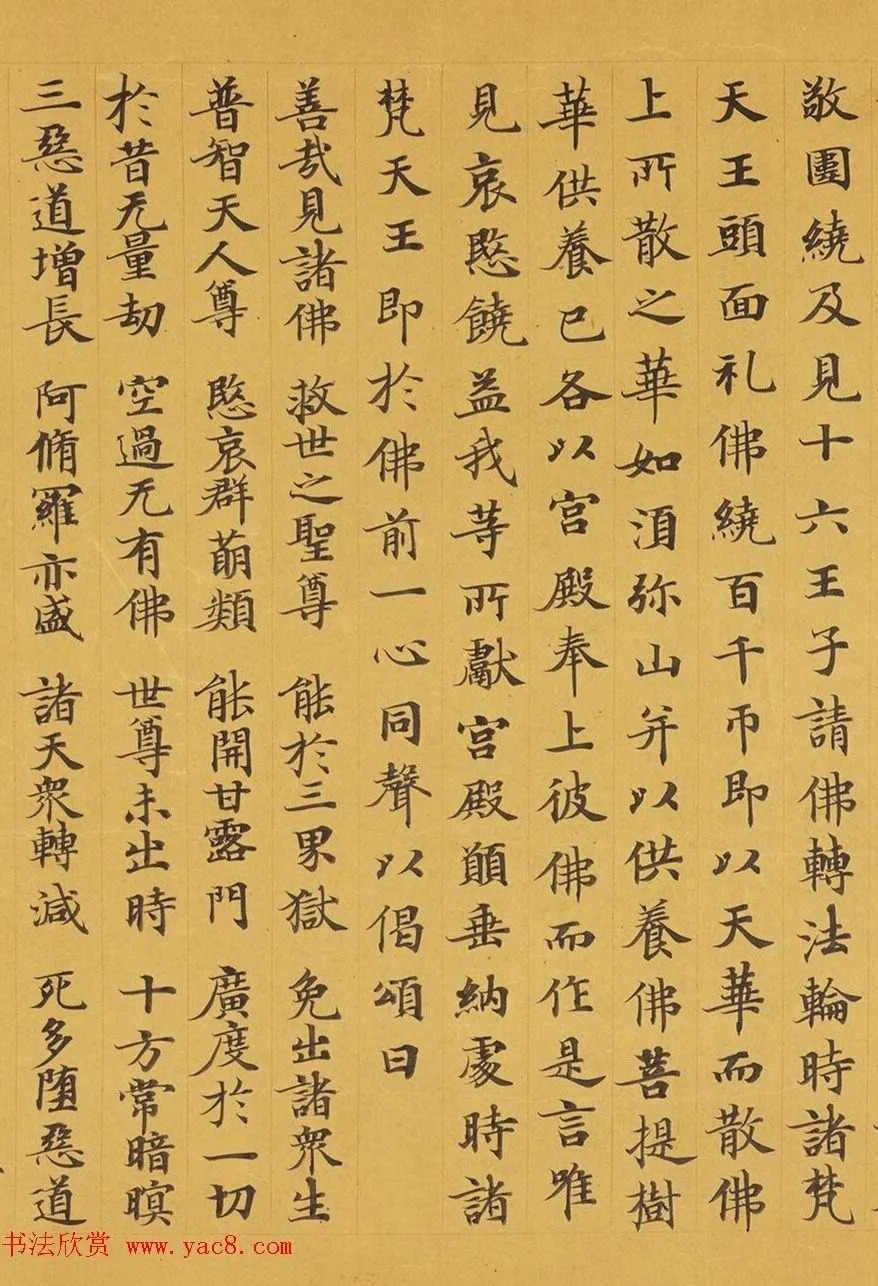 敬圍繞及見十六王子請佛轉法輪時諸梵
天王頭面礼佛繞百千帀即以天華而散佛
上所散之華如須弥山并以供養佛菩提樹
華供養已各以宮殿奉上彼佛而作是言唯
見哀愍饒益我等所獻宮殿願垂納處時諸
梵天王即於佛前一心同聲以偈頌曰
善哉見諸佛 救世之聖尊 能於三界獄 免出諸衆生
普智天人尊 愍哀群萌類 能開甘露門 廣度於一切
於昔无量劫 空過无有佛 世尊未出時 十方常暗暝
三惡道增長 阿脩羅亦盛 諸天衆轉減 死多墮惡道
书法欣赏 www.yac8.com